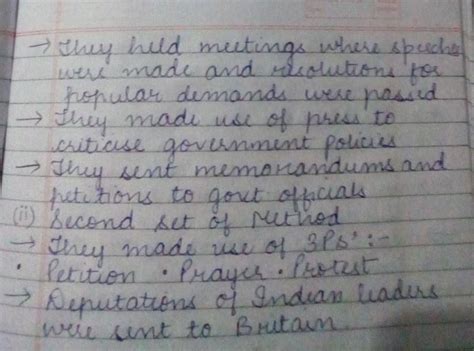 → They held meetings where speeches
were made and resolutions for
popular demands were passed
→ They made use of press to
criticise government policies
→ They sent memorandums and
petitions to govt officials
(ii) Second set of Method
→ They made use of 3Ps' :-
• Petition • Prayer • Protest
→ Deputations of Indian leaders
were sent to Britain.